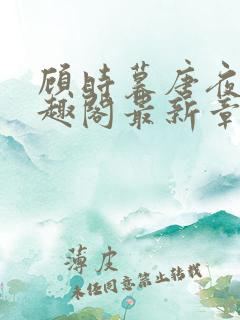 顾时幕唐夜
趣阁最新章
薄皮
未经同意禁止转载